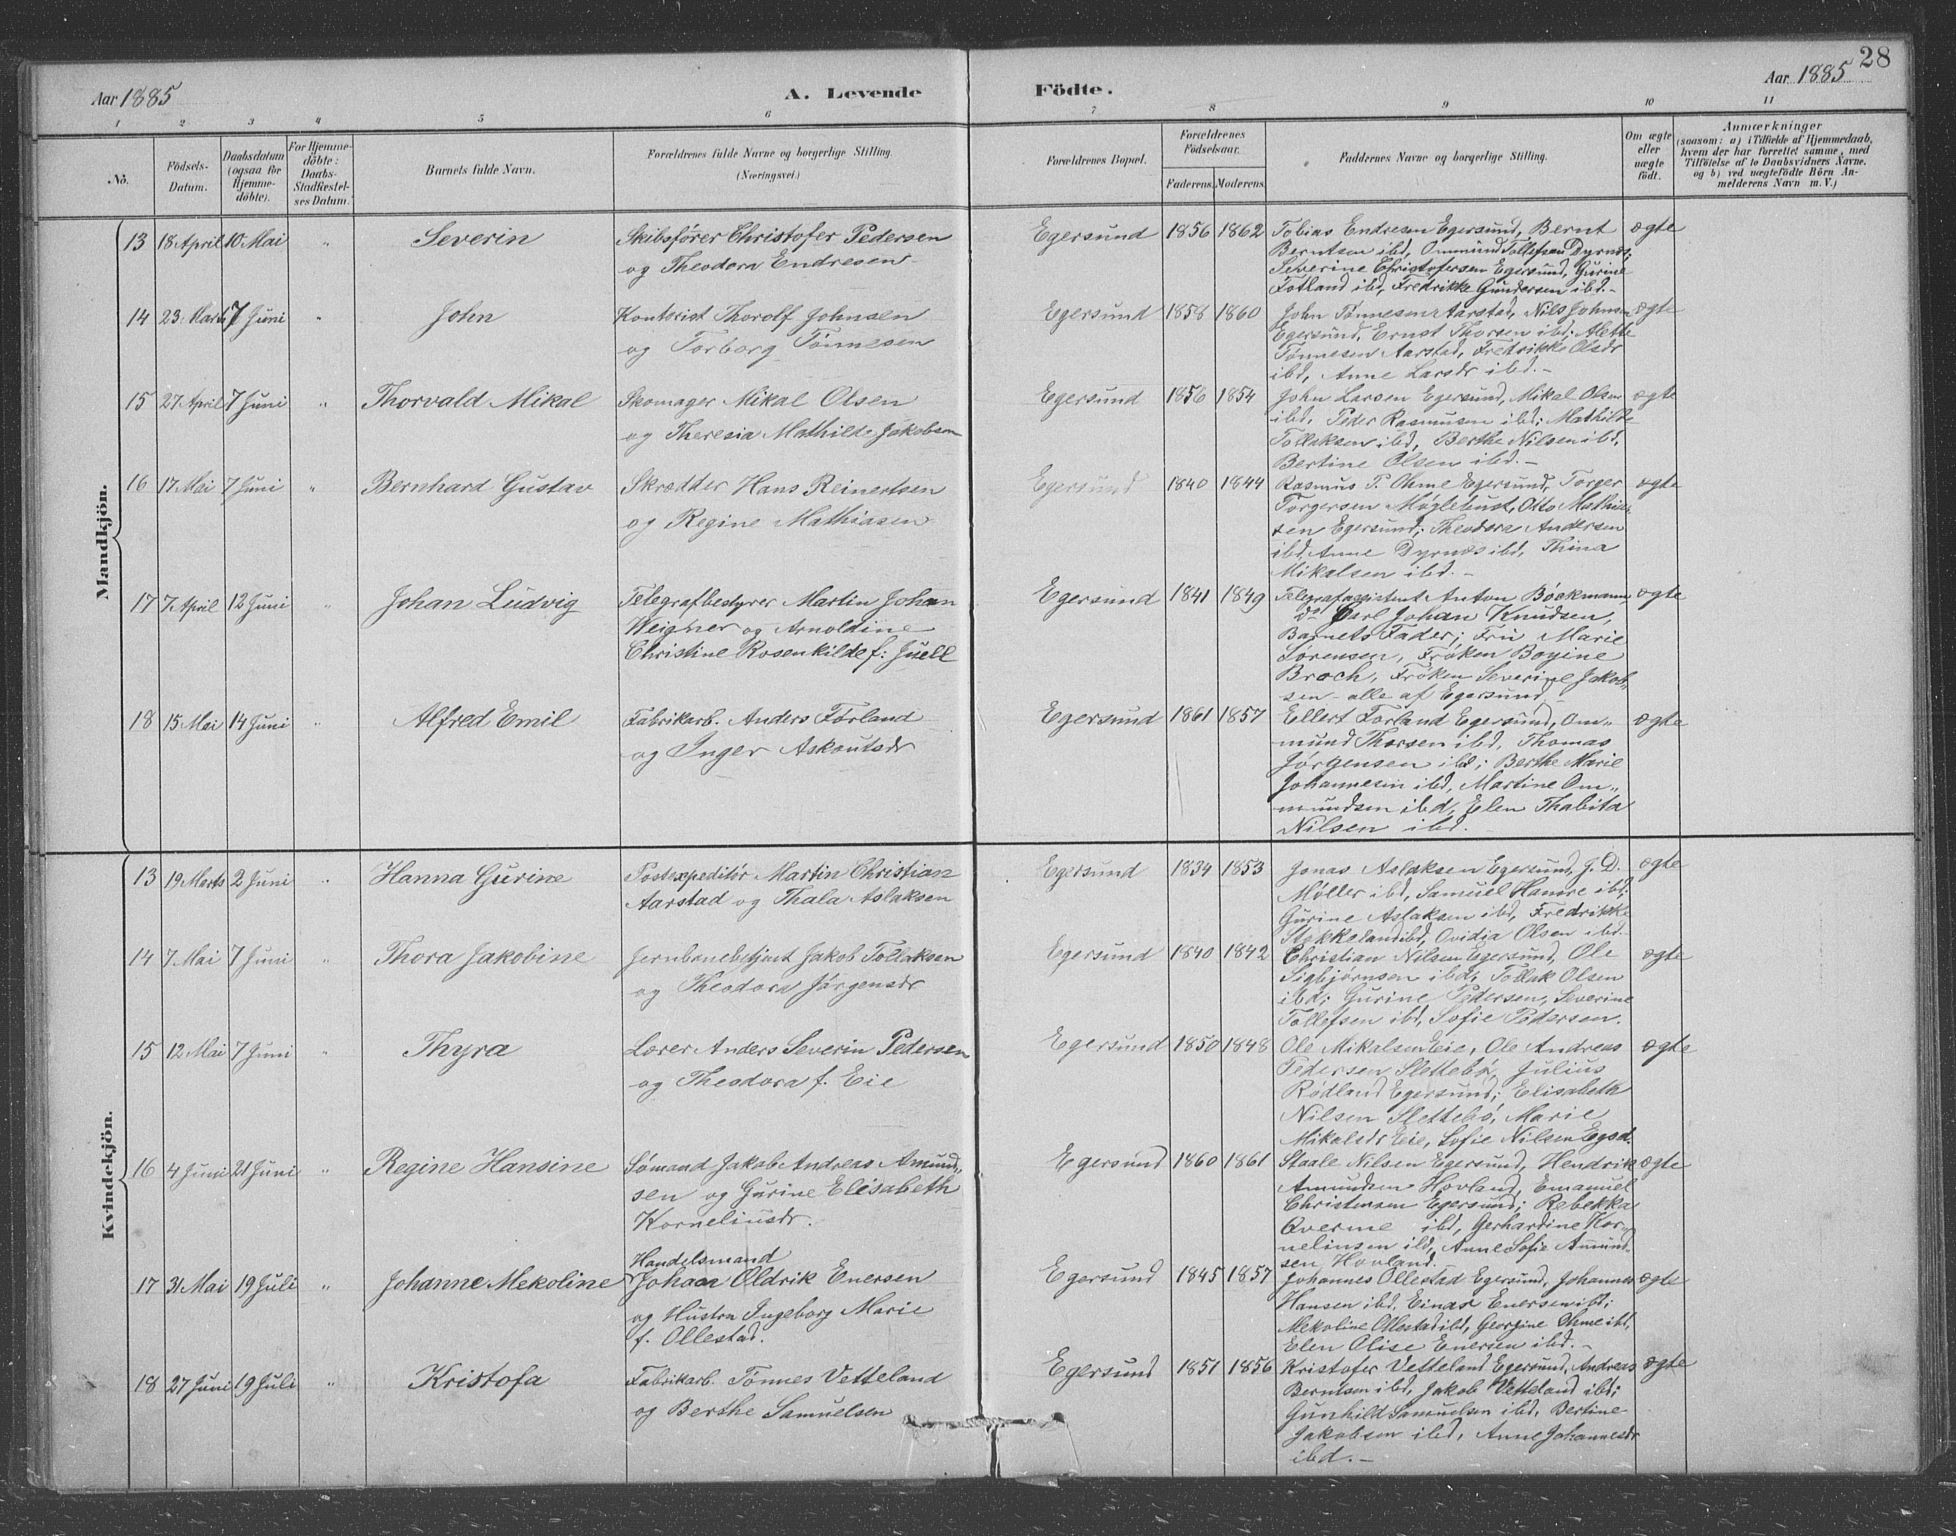 28
Aar 1885 A. Levende Födte. Aar 1885
1 2 3 4 5 6 7 8 9 10 11
No.
Födsels-
Datum.
Daabsdatum
(ogsaa för
Hjemme-
döbte).
For Hjemme-
döbte:
Daabs-
Stadfæstel-
ses Datum.
Barnets fulde Navn.
Forældrenes fulde Navne og borgerlige Stilling.
(Næringsvei.)
Forældrenes Bopæl.
Forældrenes
Födselsaar.
Faderens. Moderens.
Faddernes Navne og borgerlige Stilling.
Om ægte
eller
uægte
födt.
Anmærkninger
(saasom: a) i Tilfælde af Hjemmedaab,
hvem der har forrettet samme, med
Tilföielse af to Daabsvidners Navne.
og b) ved uægtefödte Börn An-
melderens Navn m. V.)
Mandkjön.
13 18 April 10 Mai " Severin
Skibsfører Christofer Pedersen
og Theodora Endresen
Egersund 1856 1862
Tobias Endresen Egersund, Bernt
Berntsen ibd, Ommund Tollefsen Dyrnes;
Severine Christofersen Egersund, Gurine
Fotland ibd, Fredrikke Gundersen ibd.-
ægte
14 23 Marts 7 Juni " John
Kontorist Thorolf Johnsen
og Torborg Tønnesen
Egersund 1858 1860
John Tønnesen Aarstad, Nils Johnsen
Egersund, Ernst Thorsen ibd; Alette
Tønnesen Aarstad, Fredrikke Olsdr
ibd, Anne Larsdr ibd.-
ægte
15 27 April 7 Juni " Thorvald Mikal
Skomager Mikal Olsen
og Theresia Mathilde Jakobsen
Egersund 1856 1854
John Larsen Egersund, Mikal Olsen
ibd, Peder Rasmusen ibd; Mathilde
Tollaksen ibd, Berthe Nilsen ibd,
Bertine Olsen ibd.-
ægte
16 17 Mai 7 Juni " Bernhard Gustav
Skrædder Hans Reinertsen
og Regine Mathiasen
Egersund 1840 1844
Rasmus T. Ohme Egersund, Torger
Torgersen Møglebust, Otto Mathia-
sen Egersund; Theodora Andersen
ibd, Anne Dyrnæs ibd, Thina
Mikalsen ibd.-
ægte
17 7 April 12 Juni " Johan Ludvig
Telegrafbestyrer Martin Johan
Weigner og Arnoldine
Christine Rosenkilde f: Juell
Egersund 1841 1849
Telegrafassistent Anton Bøckmann,
do Carl Johan Knudsen,
Barnets Fader; Fru Marie
Sørensen, Frøken Boyine
Broch, Frøken Severine Jakob-
sen - alle af Egersund
ægte
18 15 Mai 14 Juni " Alfred Emil
Fabrikarb. Anders Førland
og Inger Askoutsdr
Egersund 1861 1857
Ellert Førland Egersund, Om-
mund Thorsen ibd, Thomas
Jørgensen ibd; Berthe Marie
Johannesen ibd, Martine Om-
mundsen ibd, Elen Thabita
Nilsen ibd.
ægte
Kvindekjön.
13 19 Marts 2 Juni " Hanna Gurine
Postexpeditør Martin Christian
Aarstad og Thala Aslaksen
Egersund 1834 1853
Jonas Aslaksen Egersund, J. D.
Møller ibd, Samuel Hamre ibd;
Gurine Aslaksen ibd, Fredrikke
Stokkeland ibd, Ovidia Olsen ibd.
ægte
14 7 Mai 7 Juni " Thora Jakobine
Jernbanebetjent Jakob Tollaksen
og Theodora Jørgensdr
Egersund 1840 1842
Christian Nilsen Egersund, Ole
Sigbjørnsen ibd, Tollak Olsen
ibd; Gurine Pedersen, Severine
Tollefsen ibd, Sofie Pedersen.
ægte
15 12 Mai 7 Juni " Thyra
Lærer Anders Severin Pedersen
og Theodora f. Eie
Egersund 1850 1848
Ole Mikalsen Eie, Ole Andreas
Pedersen Slettebø, Julius
Rødland Egersund; Elisabeth
Nilsen Slettebø, Marie
Mikalsdr Eie, Sofie Nilsen Egsd.
ægte
16 4 Juni 21 Juni " Regine Hansine
Sømand Jakob Andreas Amund-
sen og Gurine Elisabeth
Korneliusdr.
Egersund 1860 1861
Staale Nilsen Egersund, Hendrik
Amundsen Hovland, Emanuel
Christensen Egersund; Rebekka
Qverme ibd, Gerhardine Kor-
neliusen ibd, Anne Sofie Amund-
sen Hovland.
ægte
17 31 Mai 19 Juli " Johanne Mekoline
Handelsmand
Johan Oldrik Enersen
og Hustru Ingeborg Marie
f. Ollestad.
Egersund 1845 1857
Johannes Ollestad Egersund, Johannes
Hansen ibd, Einar Enersen ibd;
Mekoline Ollestad ibd, Georgine Ohme ibd,
Elen Olise Enersen ibd.-
ægte
18 27 Juni 19 Juli " Kristofa
Fabrikarb. Tønnes Vetteland
og Berthe Samuelsen
Egersund 1851 1856
Kristofer Vetteland Egersund, Andreas
Berntsen ibd, Jakob Vetteland ibd;
Gunhild Samuelsen ibd, Bertine
Jakobsen ibd, Anne Johannesdr
ibd.-
ægte